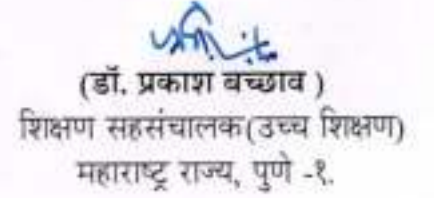 (डॉ. प्रकाश बच्छाव )
शिक्षण सहसंचालक(उच्च शिक्षण)
महाराष्ट्र राज्य, पुणे -१.